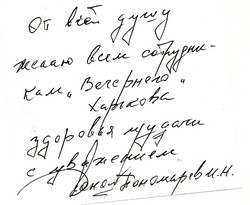 От всей душу
желаю всем сотрудни-
кам „Вечернего"
Харькова
здоровья и удачи
с уважением
Пономарев И.Н.